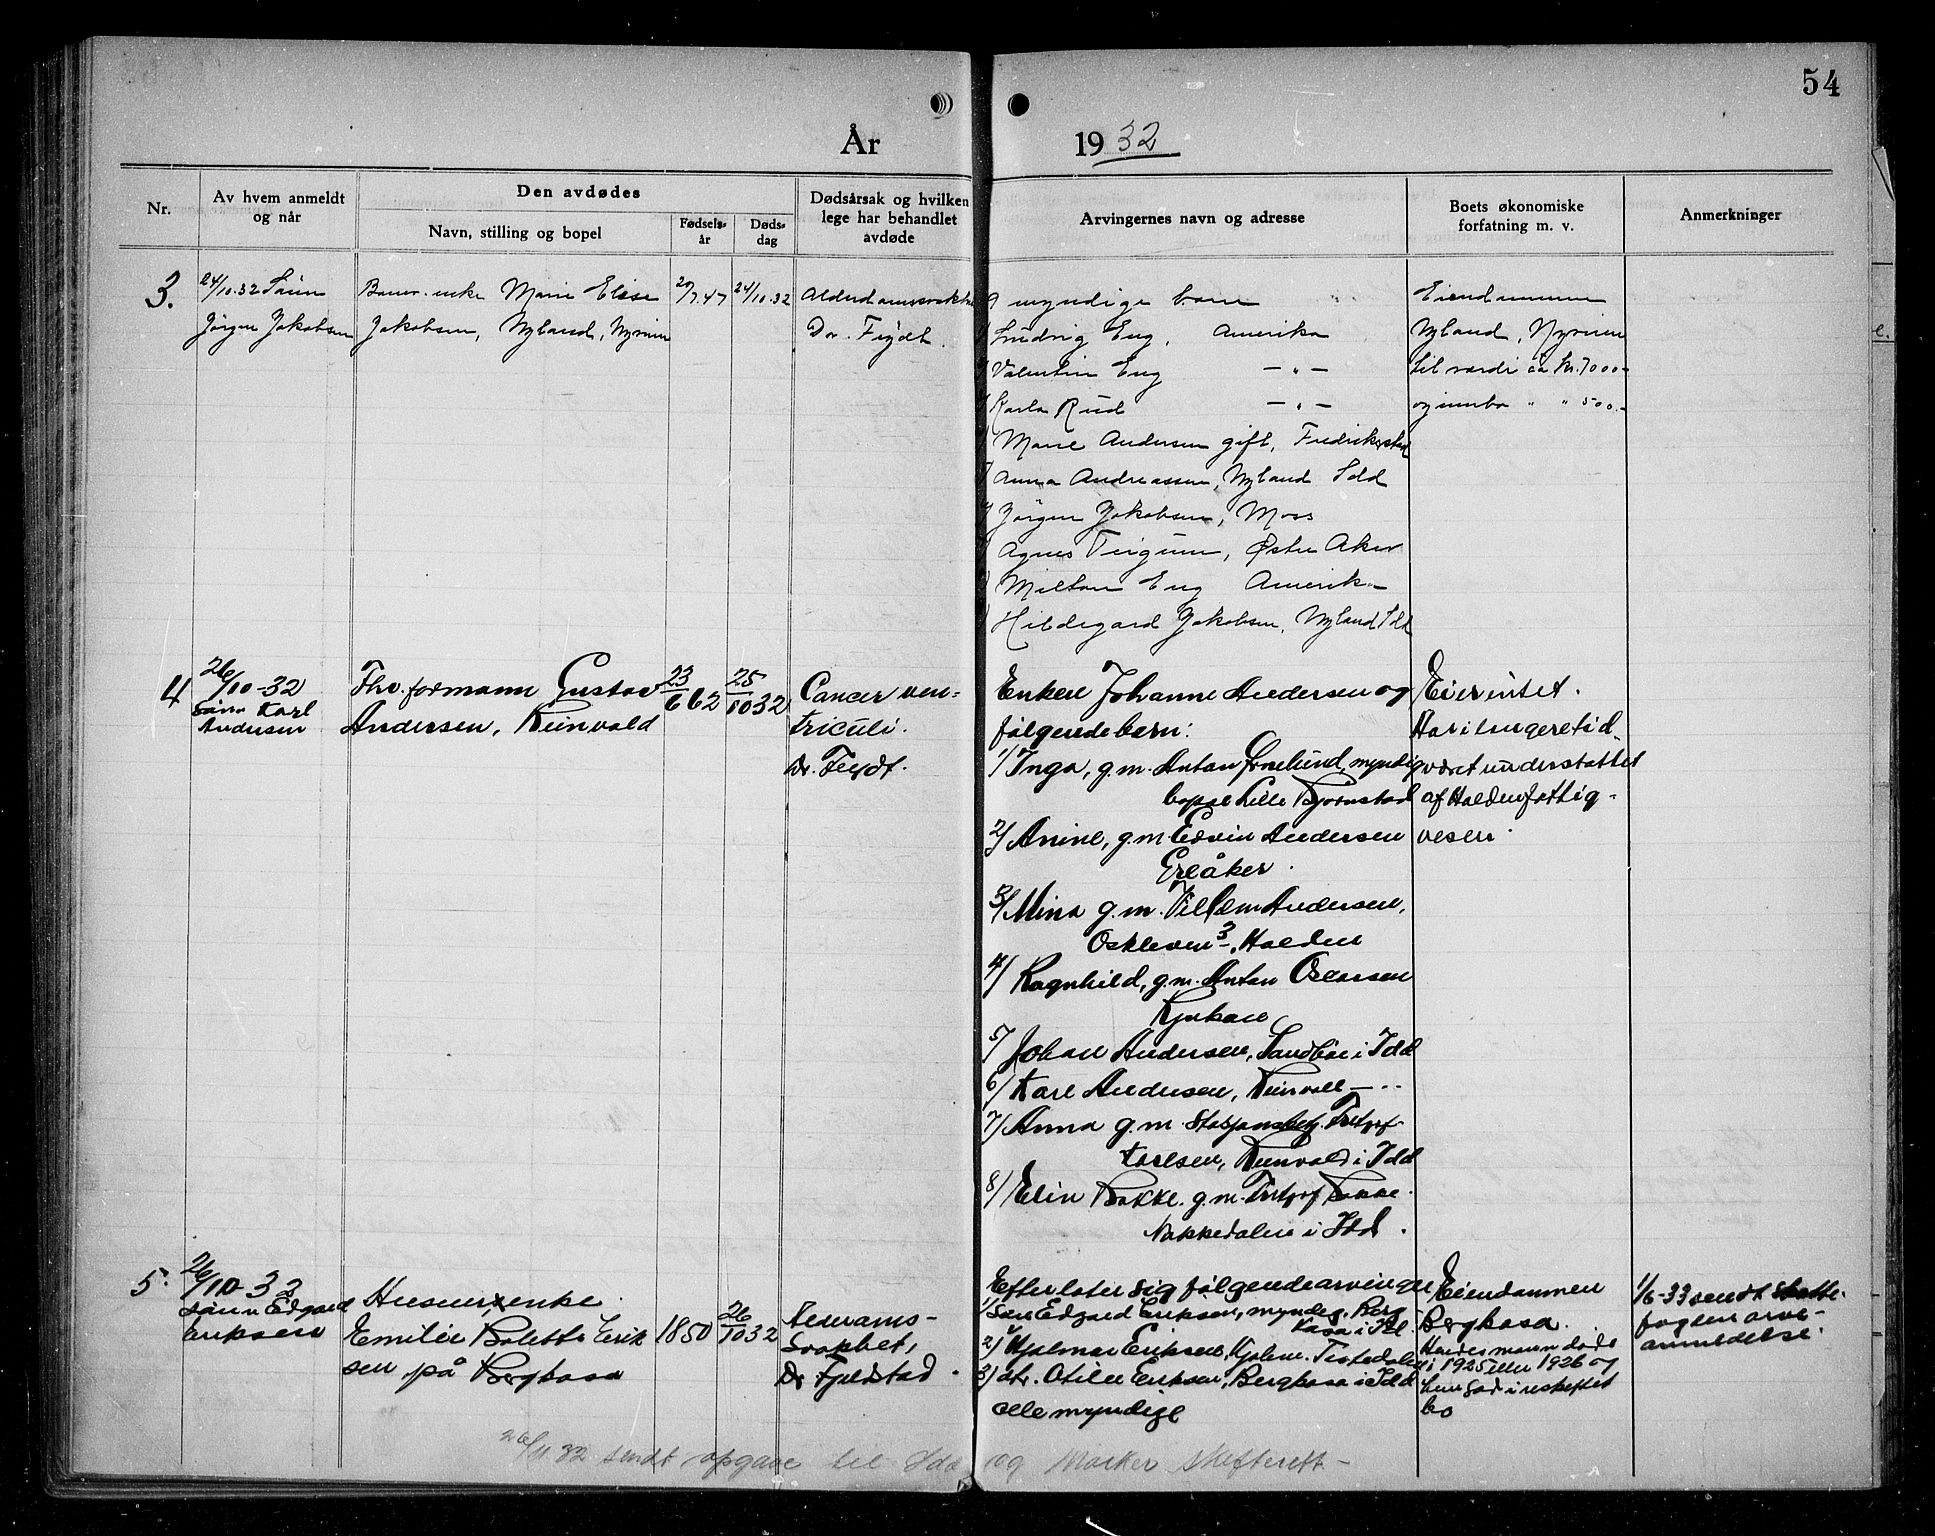 54
År 1932
Nr.
Av hvem anmeldt
og når
Den avdødes
Navn, stilling og bopel
Fødsels-
år
Døds-
dag
Dødsårsak og hvilken
lege har behandlet
avdøde
Arvingernes navn og adresse
Boets økonomiske
forfatning m. v.
Anmerkninger
3.
24/10.32 Sønn
Jörgen Jakobsen
Marie Elise
Jakobsen, Nyland,
24/10.32
Dr. Feydt.
9 myndige barn
Ludvig Eng, Amerika
Valentin Eng - " -
Karla Rud - " -
Marie Andersen gift, Fredrikstad
Anna Andreassen, Nyland Idd
Jörgen Jakobsen, Moss
Agnes Østre Aker
Milton Eng Amerika
Hildegard Jakobsen, Nyland Idd
Eiendommen
Nyland,
til værdi ca kr. 7000-
og innbo " " 500.-
4
26/10-32
Sønn Karl
Andersen
Fhv. formann Gustav
Andersen,
23/6 62
25/10 32
Cancer ven-
triculi.
Dr. Feydt.
Enken Johanne Andersen og
følgende barn:
1/ Inga, g.m. Anton myndig
bopæl Lille
2/ Anine, g.m. Edvin Andersen
Greåker.
3/ Mina g.m. Villem Andersen,
Oskleven 3, Halden
4/ Ragnhild, g.m. Anton Oscarsen
Rjukan
5/ Johan Andersen, i Idd
6/ Karl Andersen, - "
7/ Anna g.m.
Karlsen, i Idd
8/ Elin Bakke. g.m. Bakke.
Nakkedalen i Idd.
Eier intet.
Har i lengere tid
været understøttet
af Halden fattig-
vesen.
5.
26/10-32
sønn Edgard
Eriksen
Husmorenke.
Emilie Bolette Erik
sen på Bergkasa
1850
26/10 32
Alderdoms-
svakhet,
Dr Fjeldstad.
Efterlater sig følgende arvinger
1/ Søn Edgard Eriksen, myndig, Berg
kasa i Idd.
2) Hjalmar Eriksen, Tistedalen
3) dtr. Otilie Eriksen, Bergkasa i Idd
alle myndige
Eiendommen
Bergkasa.
Hendes mann døde
i 1925 eller 1926 og
hun sad i uskiftet
bo
1/6-33 sendt skatte-
fogden arve-
anmeldelse.
26/11 32 sendt opgave til Idd og Marker skifterett -